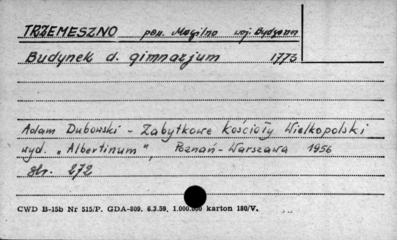 TRZEMESZNO pow. Mogilno woj. Bydgoszcz
Budynek d. gimnazjum 1773
Adam Dubowski - Zabytkowe kościoły Wielkopolski
wyd. „Albertinum", Poznań-Warszawa 1956
str. 272
CWD B-15b Nr 515/P. GDA-809. 6.3.59. 1.000.000 karton 180/V.